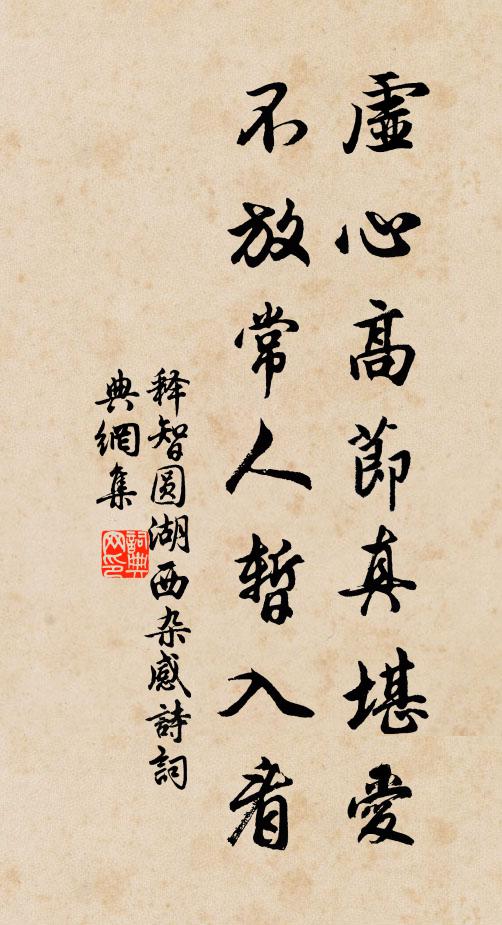 虛心高節真堪愛
不放常人暫入看
释智圆湖西杂感詩詞
典網集
詞典网印